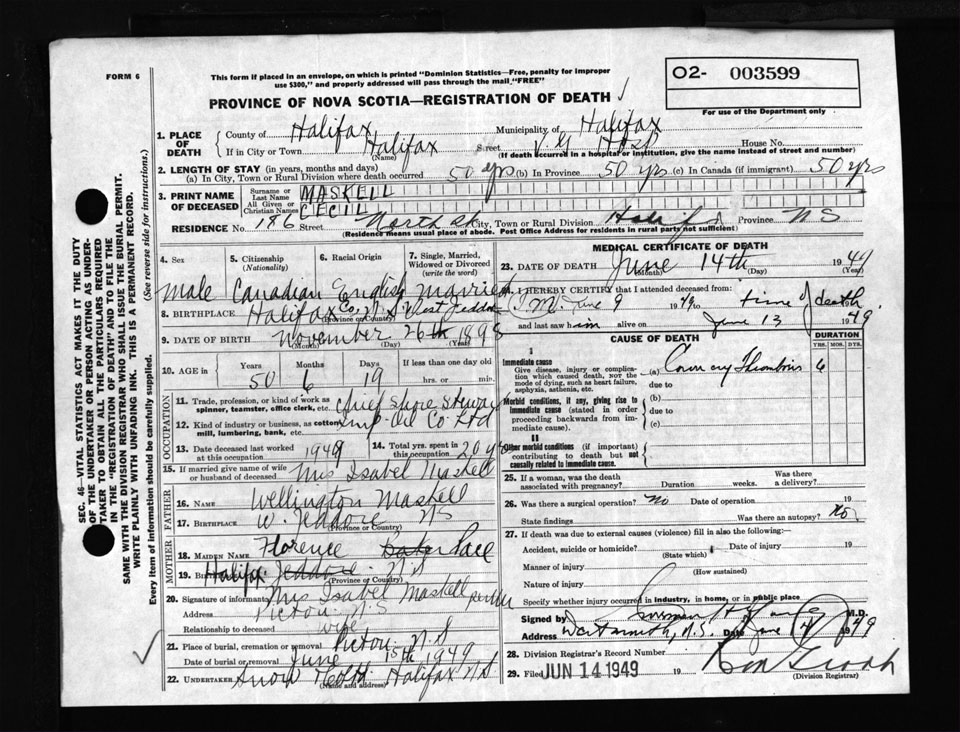 FORM 6
This form if placed in an envelope, on which is printed "Dominion Statistics—Free, penalty for improper
use $300," and properly addressed will pass through the mail "FREE"
O2- 003599
For use of the Department only
PROVINCE OF NOVA SCOTIA—REGISTRATION OF DEATH
1. PLACE OF DEATH
County of Halifax Municipality of Halifax
If in City or Town Halifax (Name) Street V. G Hosp House No.
(If death occurred in a hospital or institution, give the name instead of street and number)
2. LENGTH OF STAY (in years, months and days)
(a) In City, Town or Rural Division where death occurred 50 yrs (b) In Province 50 yrs (c) In Canada (if immigrant) 50 yrs
3. PRINT NAME OF DECEASED
Surname or Last Name MASKELL
All Given or Christian Names CECIL
RESIDENCE No. 186 Street North St City, Town or Rural Division Halifax Province N S
(Residence means usual place of abode. Post Office Address for residents in rural parts not sufficient)
4. Sex
5. Citizenship (Nationality)
6. Racial Origin
7. Single, Married, Widowed or Divorced (write the word)
male Canadian English married
8. BIRTHPLACE Halifax Co. N.S West Jeddore
(Province or Country)
9. DATE OF BIRTH November 26th 1898
(Month) (Day) (Year)
10. AGE in Years Months Days If less than one day old
50 6 19 hrs. or min.
OCCUPATION
11. Trade, profession or kind of work as spinner, teamster, office clerk, etc. Chief Shore Steward
12. Kind of industry or business, as cotton mill, lumbering, bank, etc. Imp-Oil Co Ltd
13. Date deceased last worked at this occupation 1949
14. Total yrs. spent in this occupation 20 yrs
15. If married give name of wife or husband of deceased Mrs Isabel Maskell
FATHER
16. NAME Wellington Maskell
17. BIRTHPLACE W. Jeddore N S
(Province or Country)
MOTHER
18. MAIDEN NAME Florence Baker
19. Birthplace Halifax Jeddore N.S
(Province or Country)
20. Signature of informant Mrs Isabel Maskell
Address Pictou N.S
Relationship to deceased wife
21. Place of burial, cremation or removal Pictou N.S
Date of burial or removal June 15th 1949
22. UNDERTAKER Snow & Co Ltd Halifax N S
(Name and address)
MEDICAL CERTIFICATE OF DEATH
23. DATE OF DEATH June 14th 1949
(Month) (Day) (Year)
24. I HEREBY CERTIFY that I attended deceased from:
June 9 1949 to time of death 1949
and last saw him alive on June 13 1949
CAUSE OF DEATH
DURATION
YRS. MOS. DYS.
I
Immediate cause
Give disease, injury or complication which caused death, not the mode of dying, such as heart failure, asphyxia, asthenia, etc.
(a) Coronary Thrombosis 6
due to
Morbid conditions, if any, giving rise to immediate cause (stated in order proceeding backwards from immediate cause).
(b)
due to
(c)
II
Other morbid conditions (if important) contributing to death but not causally related to immediate cause.
25. If a woman, was the death associated with pregnancy? Duration weeks. Was there a delivery?
26. Was there a surgical operation? No Date of operation 19
State findings Was there an autopsy? No.
27. If death was due to external causes (violence) fill in also the following:
Accident, suicide or homicide? (State which) Date of injury 19
Manner of injury (How sustained)
Nature of injury
Specify whether injury occurred in industry, in home, or in public place
Signed by M.D.
Address Dartmouth, N.S. Date June 14 1949
28. Division Registrar's Record Number
29. Filed JUN 14 1949 19
(Division Registrar)
SEC. 46—VITAL STATISTICS ACT MAKES IT THE DUTY
OF THE UNDERTAKER OR PERSON ACTING AS UNDER-
TAKER TO OBTAIN ALL THE PARTICULARS REQUIRED
IN THE "REGISTRATION OF DEATH" AND TO FILE THE
SAME WITH THE DIVISION REGISTRAR WHO SHALL ISSUE THE BURIAL PERMIT.
WRITE PLAINLY WITH UNFADING INK. THIS IS A PERMANENT RECORD.
Every item of information should be carefully supplied. (See reverse side for instructions.)